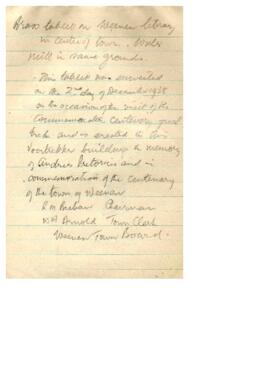 Brass tablet on Weenen library
in centre of town. Water
mill in same grounds.
"This tablet was unveiled
on the 2nd day of December 1938
on the occasion of the visit of the
Commemorative Centenary great
trek and is erected to this
Voortrekker building in memory
of Andries Pretorius and in
commemoration of the centenary
of the town of Weenen
Chairman
W H Arnold Town Clerk
Weenen Town Board.